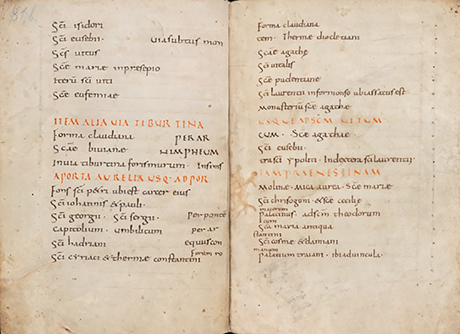 Sci isidori
Sci eusebii. Via subtus mon
Scs vitus
Scae mariae in presepio
Iterū sci viti
Scae eufemiae
ITEM ALIA VIA TIBURTINA
Forma claudiana PER AR
Scae bibiane NIMPHEUM
In via tiburtina foris murum.
A PORTA AURELIA USQ· AD POR
Fons sci petri ubi est carcer eius
Sci iohannis & pauli.
Sci georgii. Sci sergii. Per ponte
Capitolium. umbilicum per ar
Sci hadriani equus con
Sci cyriaci et thermae constantini Forum ro
Forma claudiana
tem. Thermae diocletiani
Scae agathe
Sci vitalis
Scae pudentiane
Sci laurentii in formonso ubi assatus est
Monasterium scae agathae
USQUE AD SCM VITUM
CUM. Scae agathae
Sci eusebii
In dextera sci laurentii
PRAENESTINAM
Molinae. Mica aurea. Scae mariae
Sci chrisogoni. & scae ceciliae
maiorem
Palatinus. ad scm theodorum
Sca maria antiqua
stantini
Sci cosme & damiani
Palatium traiani. ibi ad uincula.